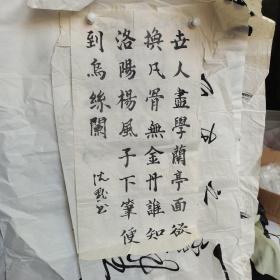 世人盡學蘭亭面欲
換凡骨無金丹誰知
洛陽楊風子下筆便
到烏絲闌